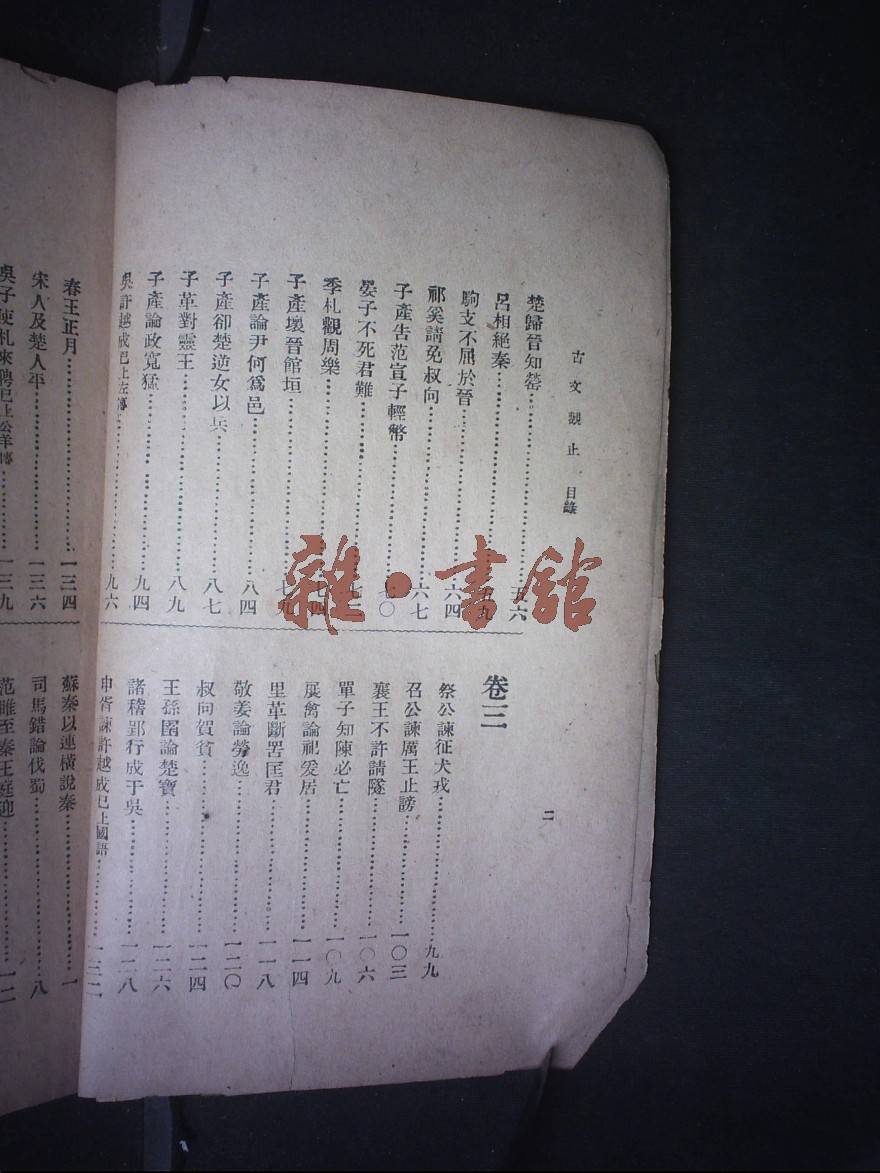 古文觀止 目錄
二
楚歸晉知罃……五六
呂相絕秦……五九
駒支不屈於晉……六四
祁奚請免叔向……六七
子產告范宣子輕幣……七〇
晏子不死君難……七二
季札觀周樂……七四
子產壞晉館垣……七九
子產論尹何爲邑……八四
子產卻楚逆女以兵……八七
子革對靈王……八九
子產論政寬猛……九四
吳許越成已上左傳……九六
卷三
祭公諫征犬戎……九九
召公諫厲王止謗……一〇三
襄王不許請隧……一〇六
單子知陳必亡……一〇九
展禽論祀爰居……一一四
里革斷罟匡君……一一八
敬姜論勞逸……一二〇
叔向賀貧……一二四
王孫圉論楚寶……一二六
諸稽郢行成于吳……一二八
申胥諫許越成已上國語……一三二
春王正月……一三四
宋人及楚人平……一三六
吳子使札來聘已上公羊傳……一三九
蘇秦以連橫說秦……一
司馬錯論伐蜀……八
范雎至秦王庭迎……一二
雜·書館